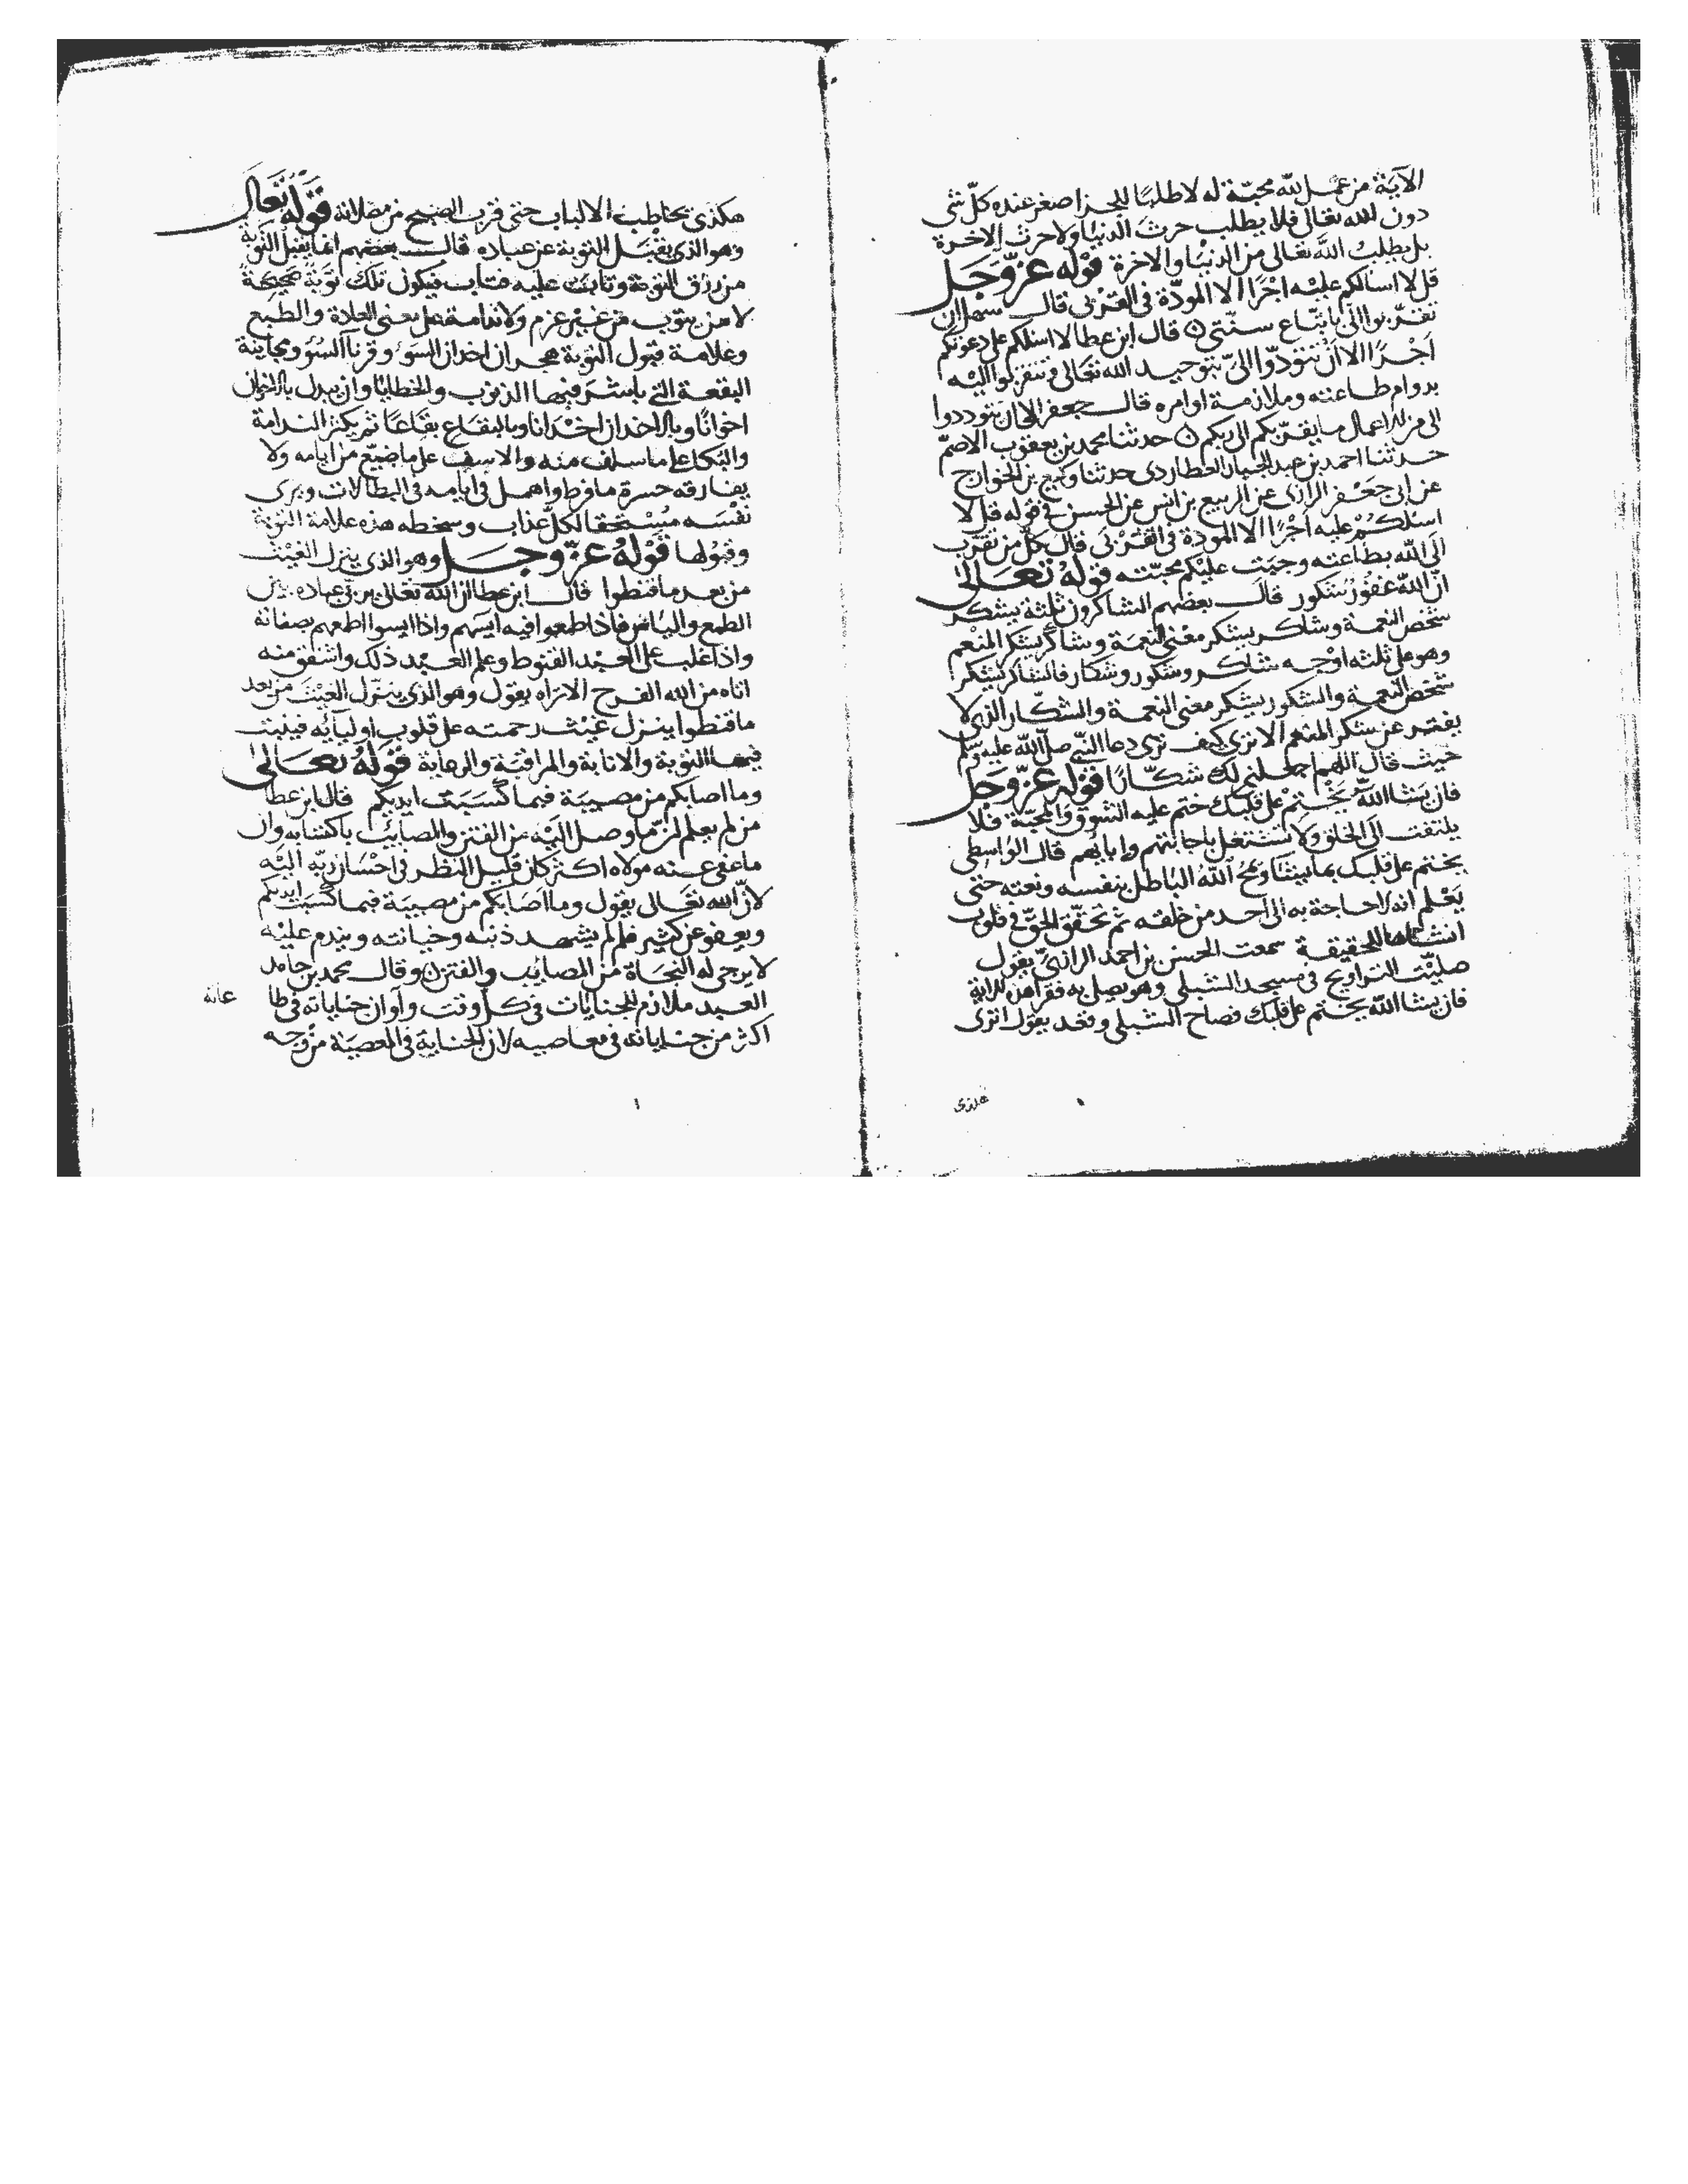 الآية من عمل لله محبّة له لا طلبًا للجزا صغر عنده كلّ شى
دون الله تعالى فلا يطلب حرث الدنيا ولا حرث الاخرة
بل يطلب الله تعالى من الدنيا والاخرة قوله عزّ وجل
قل لا اسالكم عليه اجرًا الا المودّة في القربى قال سهل ان
تقرّبوا الىّ باتبّاع سنّتي ۞ قال ابن عطا لا اسئلكم على دعوتكم
اجرًا الا ان تتودّوا الىّ بتوحيد الله تعالى وتتقربوا اليه
بدوام طاعته وملازمة اوامره قال جعفر الا ان تتوددوا
الى من الاعمال ما يقرّبكم الى ربكم ۞ حدثنا محمد بن يعقوب الاصمّ
حدثنا احمد بن عبد الجبار العطاردى حدثنا وكيع بن الجراح
عن ابى جعفر الرازى عن الربيع بن انس عن الحسن في قوله قل لا
اسئلكم عليه اجرًا الا المودة في القربى قال كلّ من تقرّب
الى الله بطاعته وجبت عليكم محبّته قوله تعالى
انّ الله غفور شكور قال بعضهم الشاكرون ثلثة يشكر
شخص النعمة وشاكر يشكر معنى النعمة وشاكر يشكر المنعم
وهو على ثلثه اوجه شاكر وشكور وشكار فالشاكر يشكر
شخص النعمة والشكور يشكر معنى النعمة والشكّار الذى لا
يفتر عن شكر المنعم الا ترى كيف ترى دعا النبى صلّى الله عليه وسلم
حيث قال اللهم اجعلنى لك شكّارًا قوله عزّ وجل
فان يشا الله يختم على قلبك ختم عليه الشوق والمحبّة فلا
يلتفت الى الخلق ولا تشتغل باجابتهم وابائهم قال الواسطى
يختم على قلبك بما يشا ويمحُ الله الباطل بنفسه ونعته حتى
يعلم انه لا حاجة به الى احد من خلقه ثم تحقّق الحقّ في قلوب
انشاها للحقيقة سمعت الحسن بن احمد الرازىّ يقول
صليّت التراويح في مسجد الشبلى وهو يصلى به فقرا هذه الاية
فان يشا الله يختم على قلبك فصاح الشبلى وقعد يقول اترى
هكذى يخاطب الالباب حتى قرب الصبح من صلاته قوله تعالى
وهو الذى يقبل التوبة عن عباده قال بعضهم انما يقبل التوبة
من رزق التوبة وتاب عليه فتاب فيكون تلك توبة صحيحة
لا من يتوب من غير عزم ولا ندامة على معنى العادة والطبع
وعلامة قبول التوبة هجران اخدان السوء وقرنآ السّوء ومجانبة
البقعة التي باشر فيها الذنوب والخطايا وان يبدل بالاخوان
اخوانًا وبالاخدان اخدانا وبالبقاع بقاعًا ثم يكثر الندامة
والبكا على ما سلف منه والاسف على ما ضيّع من ايامه ولا
يفارقه حسرة ما فرط واهمل في ايامه في البطالات ويرى
نفسه مستحقا لكلّ عذاب وسخطه هذه علامة التوبة
وقبولها قوله عزّ وجل وهو الذى ينزل الغيث
من بعد ما قنطوا قال ابن عطا ان الله تعالى يربى عباده بين
الطمع والياس فاذا طمعوا فيه ايسهم واذا ايسوا اطمعهم بصفاته
واذا غلب على العبد القنوط وعلم العبد ذلك واشفق منه
اتاه من الله الفرج الا تراه يقول وهو الذى ينزّل الغيث من بعد
ما قنطوا ينزل غيث رحمته على قلوب اوليآئه فينبت
فيها التوبة والانابة والمراقبة والرعاية قوله تعالى
وما اصابكم من مصيبة فبما كسبت ايديكم قال ابن عطا
من لم يعلم انّ ما وصل اليه من الفتن والمصايب باكتسابه وان
ما عفى عنه مولاه اكثر كان قليل النظر في احسان ربّه اليه
لانّ الله تعالى يقول وما اصابكم من مصيبة فبما كسبت ايديكم
ويعفو عن كثير فلم لم يشهد ذنبه وخيانته ويندم عليه
لا يرجى له النجاة من المصايب والفتن وقال محمد بن حامد
العبد ملازم للجنايات في كلّ وقت واوان جناياته في طا
عاته
اكثر من جناياته في معاصيه لان الجناية في المعصية من وجه
هكذى